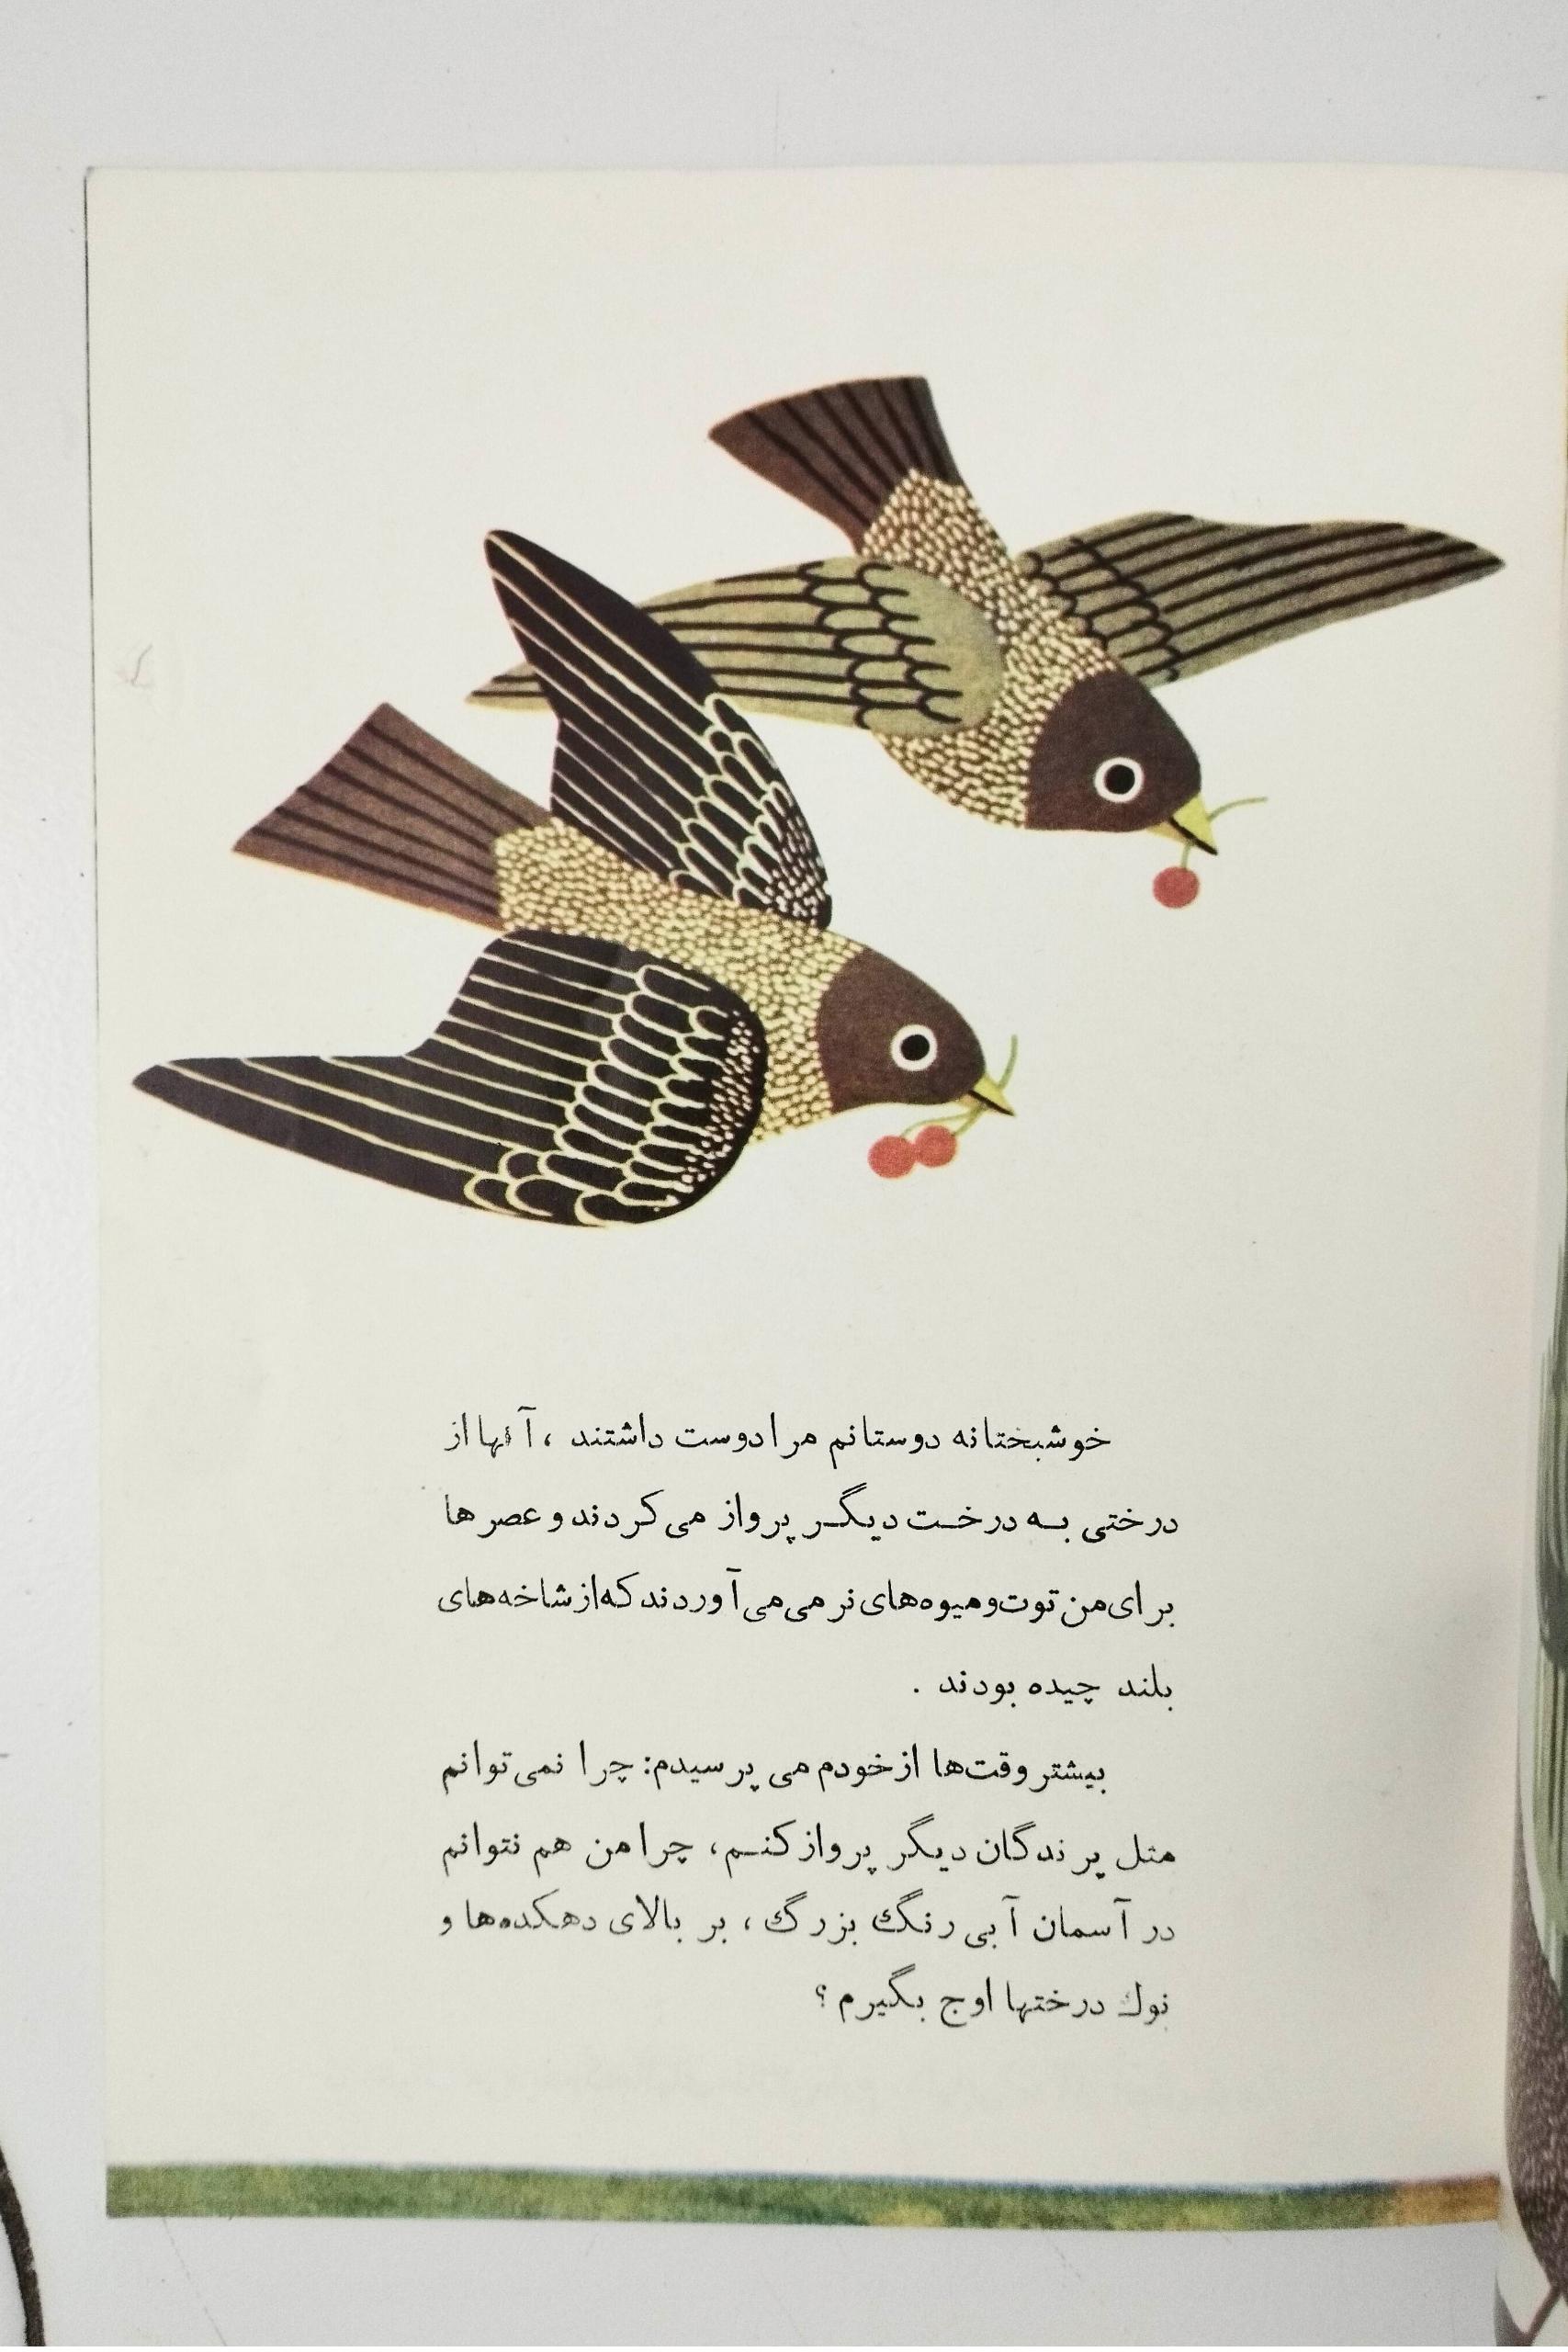 خوشبختانه دوستانم مرا دوست داشتند ، آنها از
درختی به درخت دیگر پرواز می‌کردند و عصرها
برای من توت و میوه‌های نرمی می‌آوردند که از شاخه‌های
بلند چیده بودند .
بیشتر وقت‌ها از خودم می پرسیدم: چرا نمی‌توانم
مثل پرندگان دیگر پرواز کنم، چرا من هم نتوانم
در آسمان آبی رنگ بزرگ ، بر بالای دهکده‌ها و
نوك درختها اوج بگیرم ؟